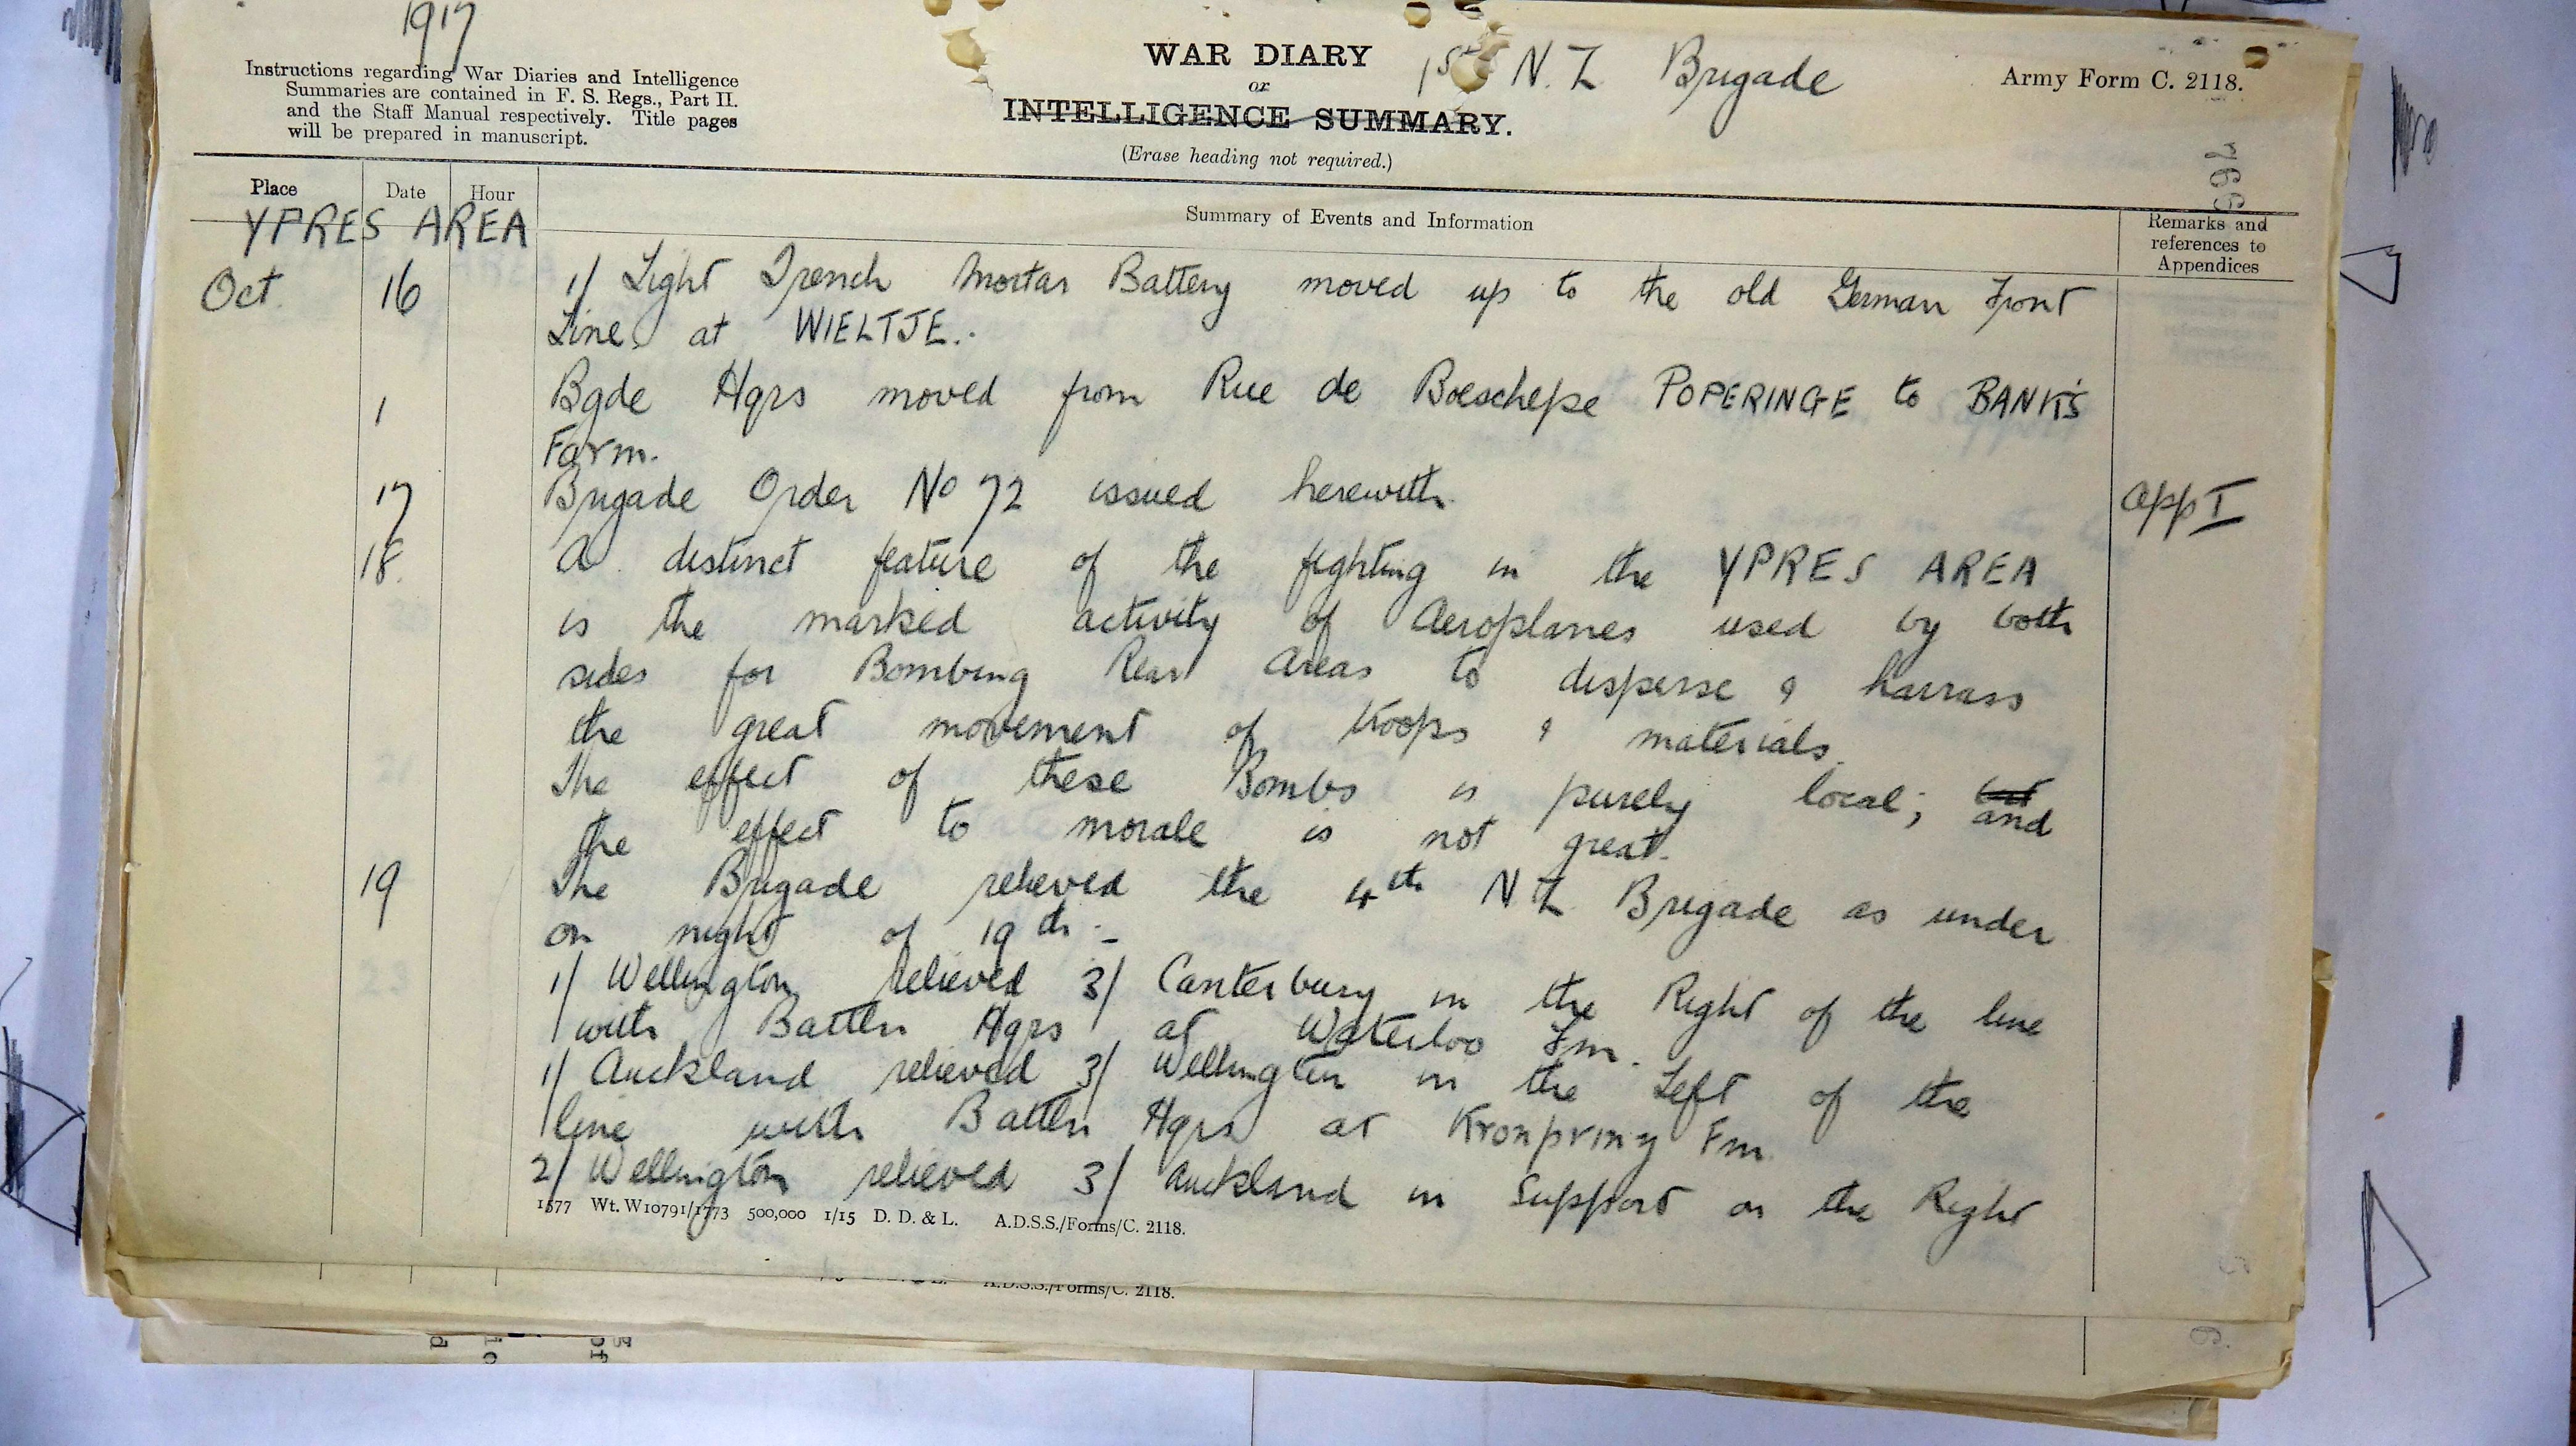 1917
Instructions regarding War Diaries and Intelligence
Summaries are contained in F. S. Regs., Part II.
and the Staff Manual respectively. Title pages
will be prepared in manuscript.
WAR DIARY
or
INTELLIGENCE SUMMARY.
(Erase heading not required.)
1st N.Z. Brigade
Army Form C. 2118.
Place Date Hour
Summary of Events and Information
Remarks and
references to
Appendices
YPRES AREA
Oct. 16 1/ Light Trench Mortar Battery moved up to the old German Front
Line at WIELTJE.
1 Bgde Hqrs moved from Rue de Boeschepe POPERINGE to BANK'S
Farm.
17 Brigade Order No 72 issued herewith. App I
18. A distinct feature of the fighting in the YPRES AREA
is the marked activity of Aeroplanes used by both
sides for Bombing Rear Areas to disperse & harrass
the great movement of troops & materials.
The effect of these Bombs is purely local; but and
the effect to morale is not great.
19 The Brigade relieved the 4th N Z Brigade as under
on night of 19th :-
1/ Wellington relieved 3/ Canterbury in the Right of the line
with Battln Hqrs at Waterloo Fm.
1/ Auckland relieved 3/ Wellington in the Left of the
line with Battln Hqrs at Kronprinz Fm.
2/ Wellington relieved 3/ Auckland in Support on the Right
1577 Wt. W10791/1773 500,000 1/15 D. D. & L. A.D.S.S./Forms/C. 2118.
A.D.S.S./Forms/C. 2118.